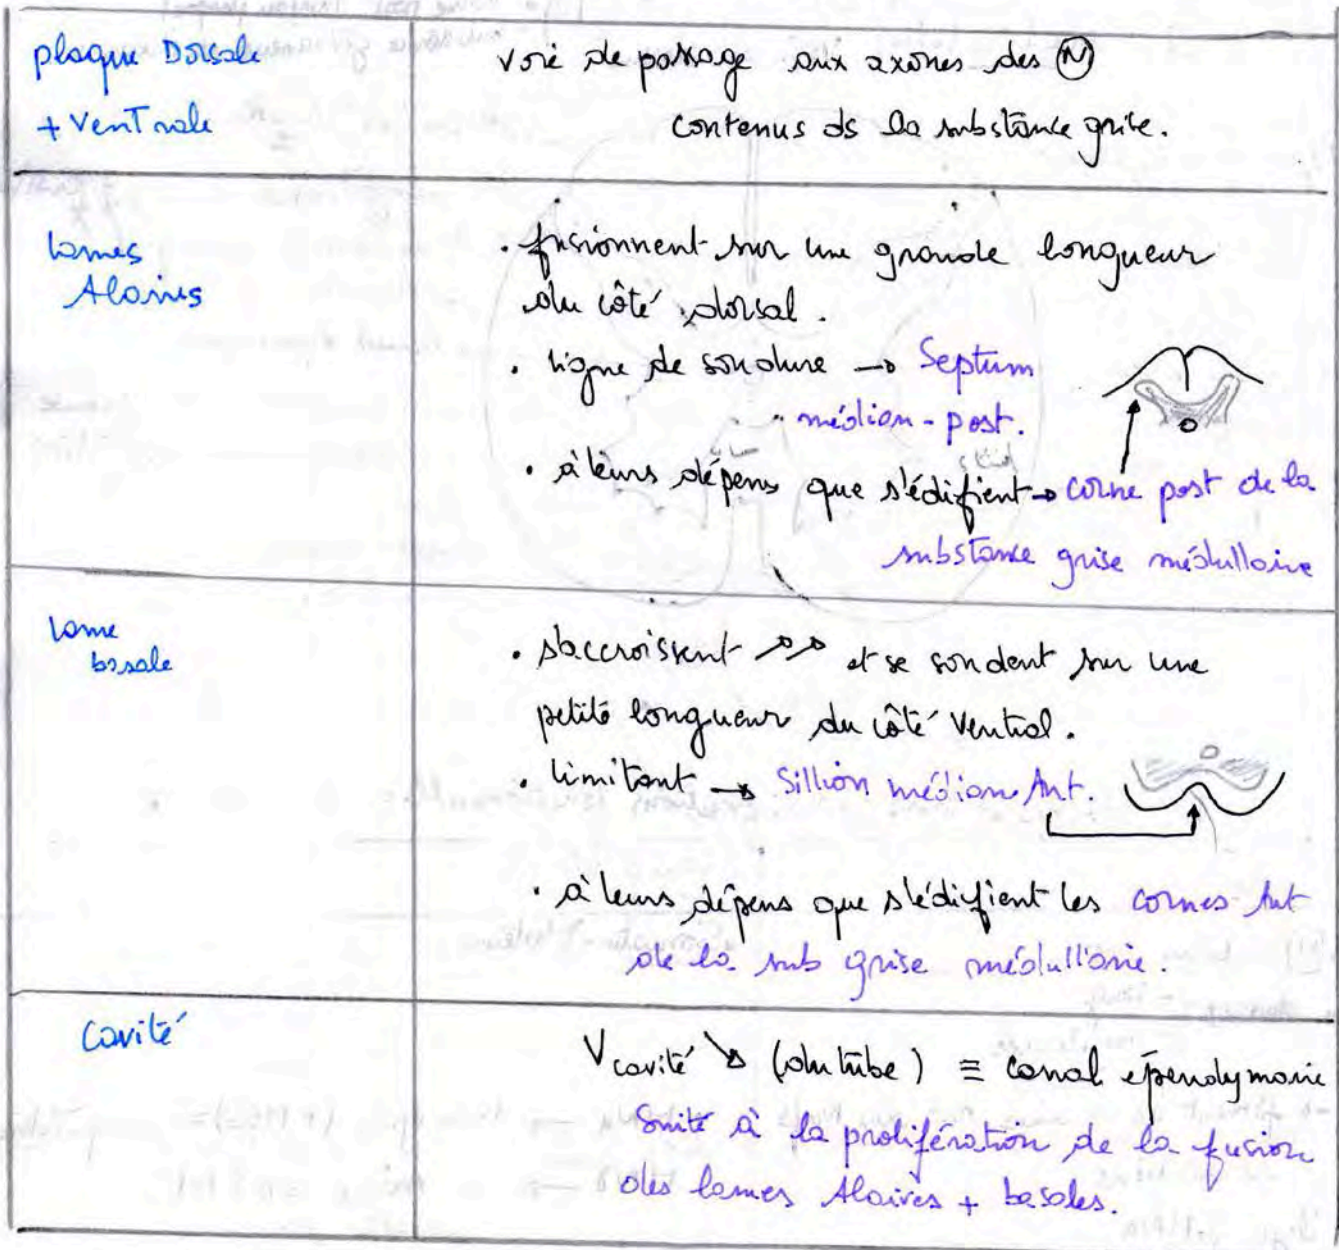 plaque Dorsale
+ Ventrale
voie de passage aux axones des Ⓝ
contenus ds la substance grise.
lames
Alaires
. fusionnent sur une grande longueur
du côté dorsal.
. ligne de soudure → Septum
médian-post.
. à leurs dépens que s'édifient → corne post de la
substance grise médullaire
lame
basale
. s'accroissent ↗↗ et se soudent sur une
petite longueur du côté Ventral.
. limitant → Sillion médian Ant.
. à leurs dépens que s'édifient les cornes Ant
de la sub grise médullaire.
Cavité
V cavité ↘ (du tube) ≡ canal épendymaire
Suite à la prolifération de la fusion
des lames Alaires + basales.